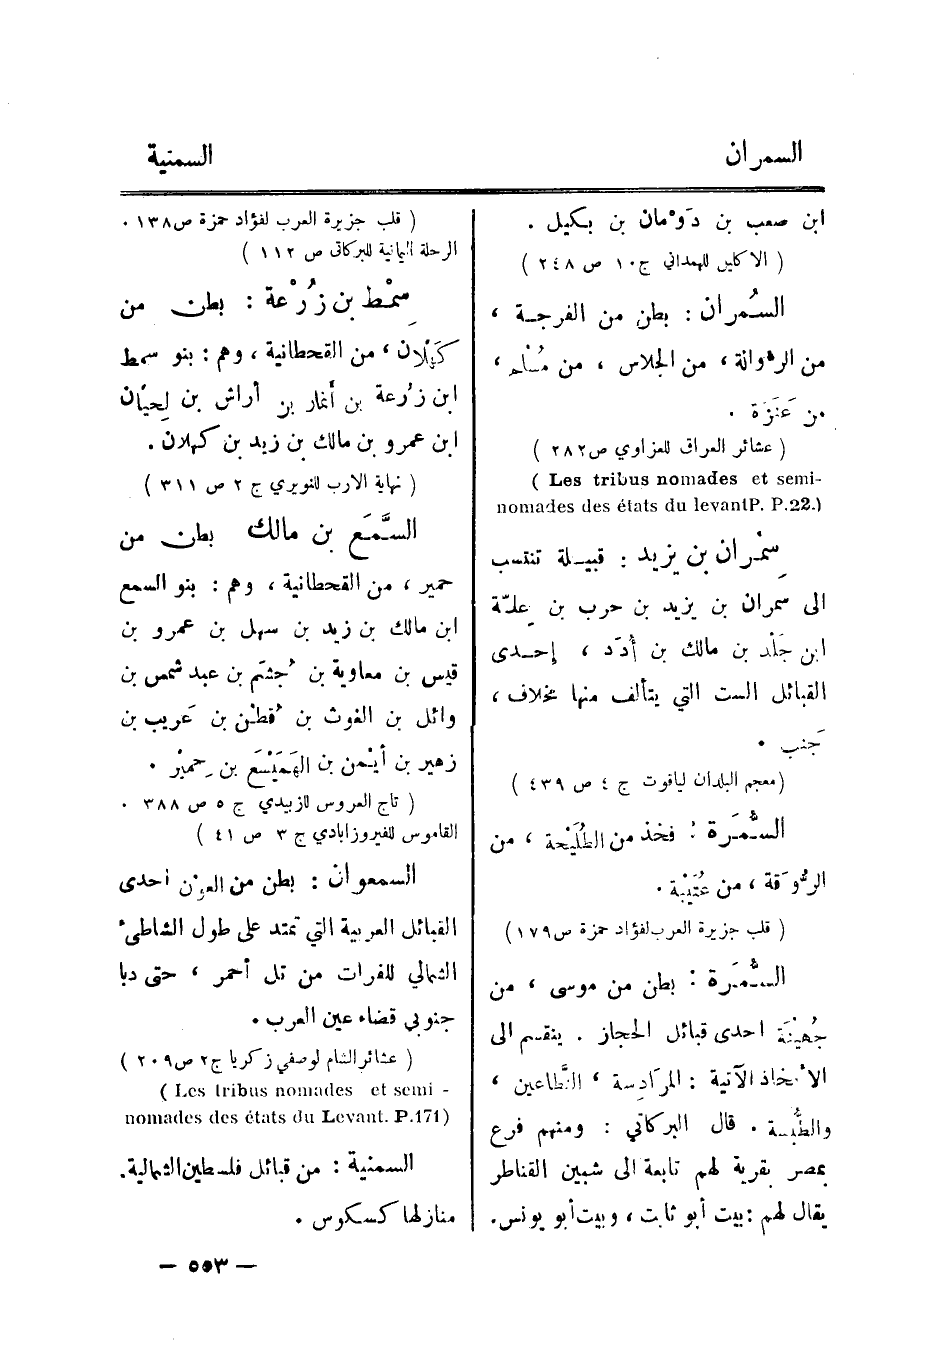 السمران
السمنية
ابن صعب بن دَوْمان بن بكيل .
( الاكليل للهمداني ج١٠ ص ٢٤٨ )
السُمران : بطن من الفرجـة ،
من الرهوانة ، من الجلاس ، من مُسْلم ،
من عَنَزَة .
( عشائر العراق للعزاوي ص٢٨٢ )
( Les tribus nomades et semi-
nomades des états du levantP. P.22.)
سِمْران بن يزيد : قبيـلة تنتسب
الى سمران بن يزيد بن حرب بن عِلـّة
ابن جَلْد بن مالك بن أُدَد ، إحـدى
القبائل الست التي يتألف منها مخلاف ،
جَنب .
(معجم البلدان لياقوت ج ٤ ص ٤٣٩ )
السُّمَرة : فخذ من الطُلَيْحة ، من
الرُّوَقة ، من عُتَيْبة .
( قلب جزيرة العرب لفؤاد حمزة ص١٧٩)
السُّمَرة : بطن من موسى ، من
جُهَيْنَة احدى قبائل الحجاز . ينقسم الى
الأفخاذ الآتية : المَرادِسة ، النَّطاعين ،
والطُّبَسة . قال البركاتي : ومنهم فرع
بمصر بقرية لهم تابعة الى شبين القناطر
يقال لهم : بيت أبو ثابت ، وبيت أبو يونس.
( قلب جزيرة العرب لفؤاد حمزة ص١٣٨ .
الرحلة اليمانية للبركاتى ص ١١٢ )
سِمْط بن زُرْعة : بطن من
كَهْلان ، من القحطانية ، وهم : بنو سمط
ابن زُرعة بن أنمار بن أراش بن لِحيْان
ابن عمرو بن مالك بن زيد بن كهلان .
( نهاية الارب للنويري ج ٢ ص ٣١١ )
السَّمَع بن مالك بطن من
حمير ، من القحطانية ، وهم : بنو السمع
ابن مالك بن زيد بن سهل بن عمرو بن
قيس بن معاوية بن جُشَم بن عبد شمس بن
وائل بن الغوث بن قُطْن بن عَريب بن
زهير بن أيْمن بن الهَمَيْسَع بن حِمْيَر .
( تاج العروس للزبيدي ج ٥ ص ٣٨٨ .
القاموس للفيروزابادي ج ٣ ص ٤١ )
السمعوان : بطن من العون احدى
القبائل العربية التي تمتد على طول الشاطىء
الشمالي للفرات من تل أحمر ، حتى دبا
جنوبي قضاء عين العرب .
( عشائر الشام لوصفي زكريا ج٢ ص٢٠٩ )
( Les tribus nomades et semi -
nomades des états du Levant. P.171)
السمنية : من قبائل فلسطين الشمالية.
منازلها كسكوس .
— ٥٥٣ —